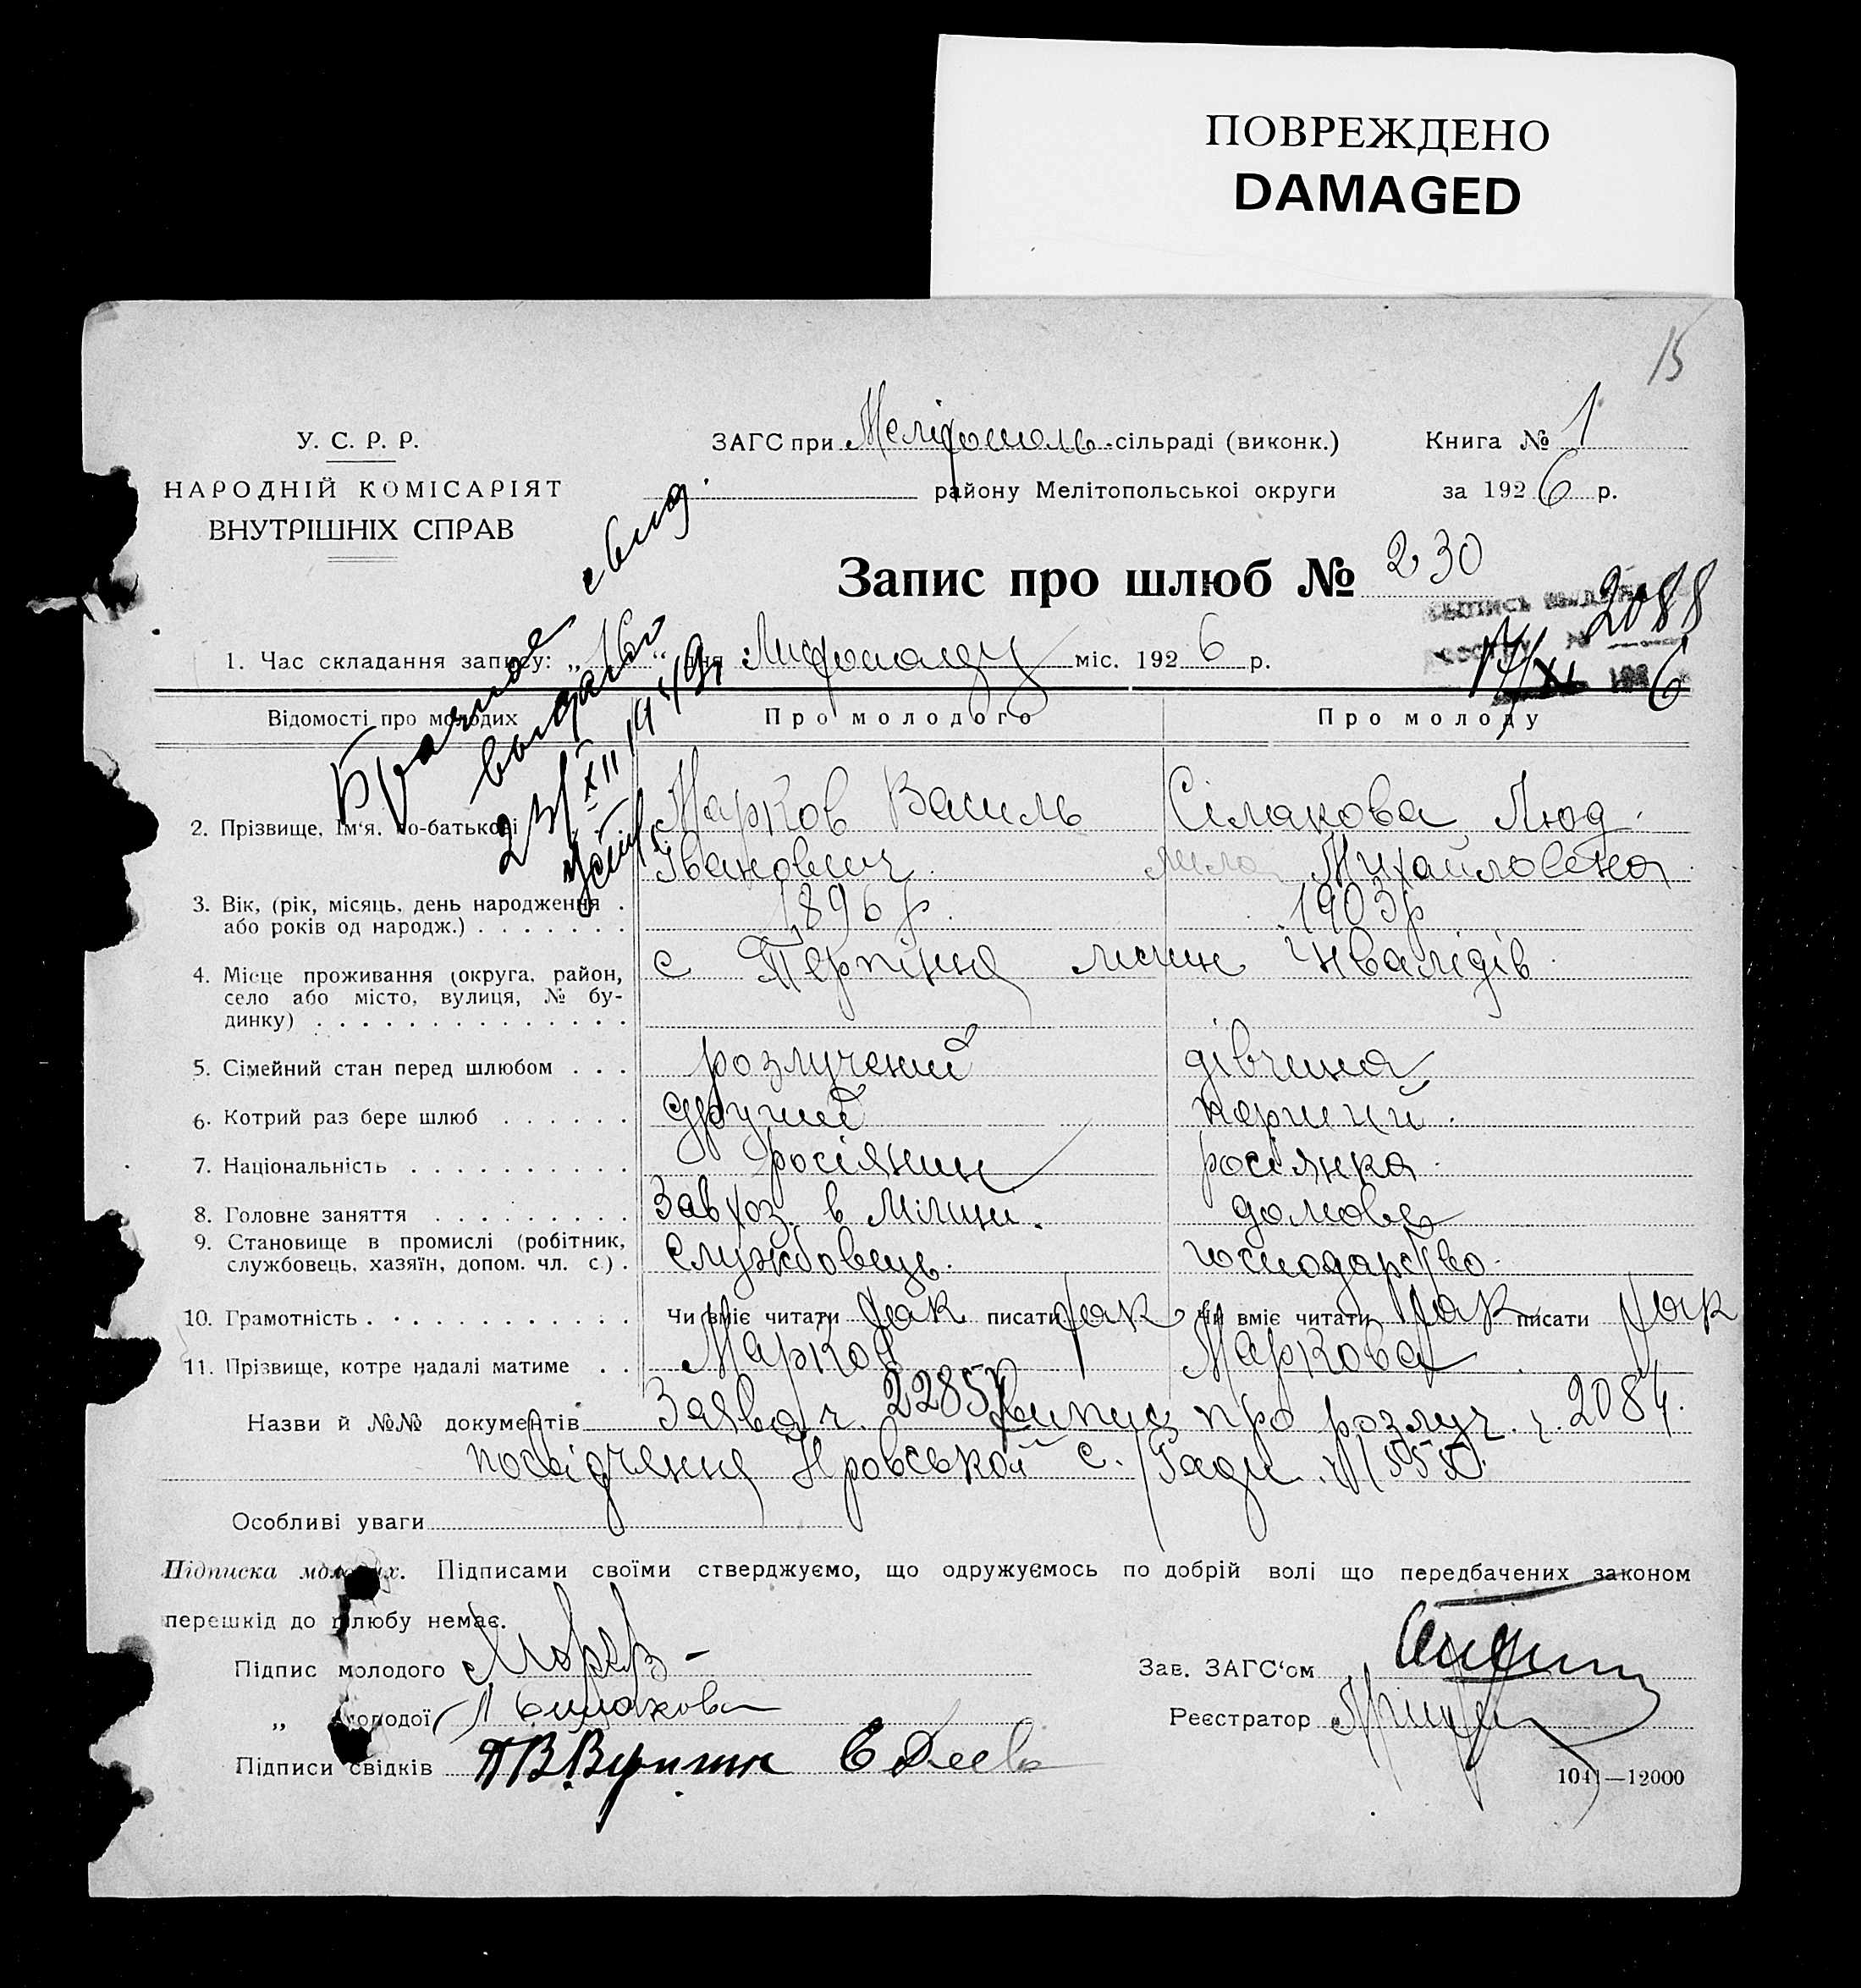 ПОВРЕЖДЕНО
DAMAGED
15
У. С. Р. Р.
НАРОДНІЙ КОМІСАРІЯТ
ВНУТРІШНІХ СПРАВ
ЗАГС при Мелітополь сільраді (виконк.)
району Мелітопольської округи
Книга № 1
за 1926 р.
Запис про шлюб № 230
2088
17/XI 6
1. Час складання запису: „16“ дня Листопаду міс. 1926 р.
Брачное свид.
выдано
XII
Відомості про молодих
Про молодого
Про молоду
2. Прізвище, Ім'я, по-батькові
Марков Василь Сімакова Люд
Іванович мила Михайловна
3. Вік, (рік, місяць, день народження
або років од народж.)
1896 р. 1903 р
4. Місце проживання (округа, район,
село або місто, вулиця, № бу-
динку)
с Терпіння Інвалідів
5. Сімейний стан перед шлюбом розлучений дівчина
6. Котрий раз бере шлюб другий перший
7. Національність росіянин росіянка
8. Головне заняття Завхоз. в Міліції. домове
9. Становище в промислі (робітник,
службовець, хазяїн, допом. чл. с.)
Службовець. господарство.
10. Грамотність Чи вміє читати так писати так Чи вміє читати так писати так
11. Прізвище, котре надалі матиме Марков Маркова
Назви й №№ документів Заява ч. 2285 Випис про розлуч. ч. 2084.
посвідчення с. Ради
Особливі уваги
Підписка молодих. Підписами своїми стверджуємо, що одружуємось по добрій волі що передбачених законом
перешкід до шлюбу немає.
Підпис молодого
Зав. ЗАГС'ом
„ молодої Л Симакова
Реєстратор
Підписи свідків
1041—12000